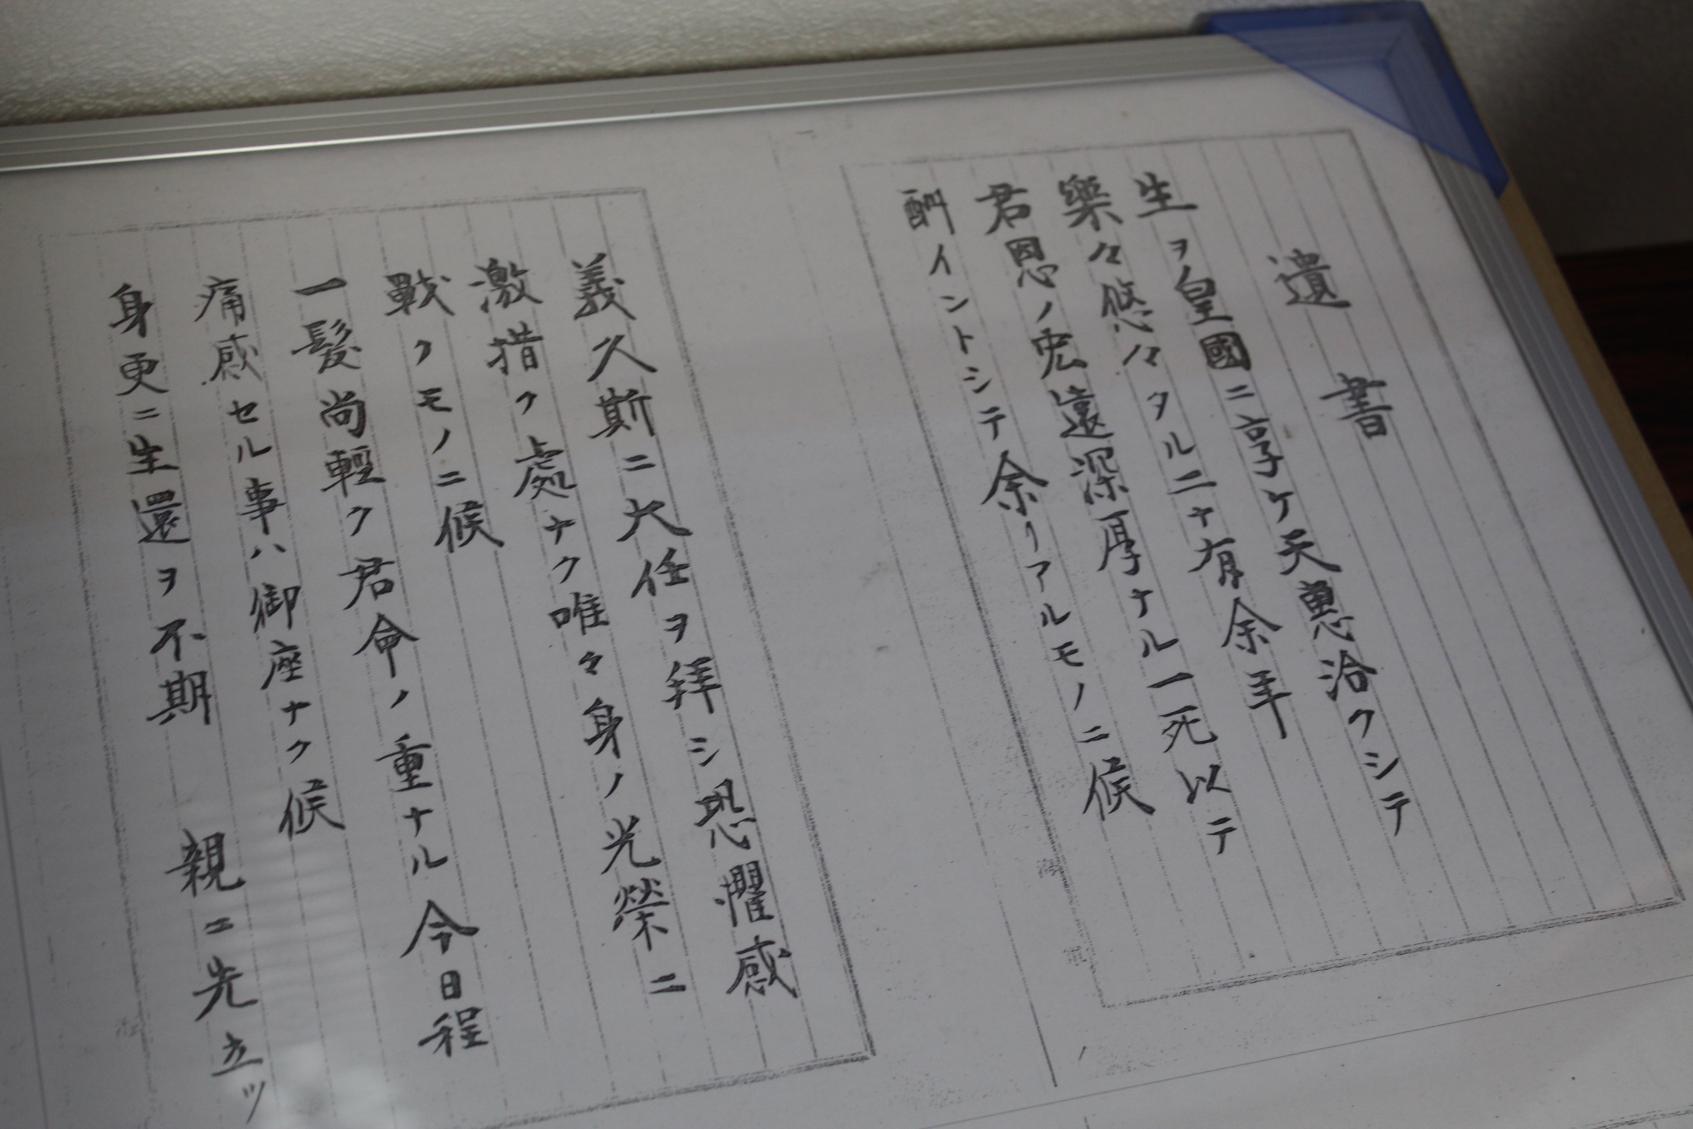 遺書
生ヲ皇國ニ享ケ天惠洽クシテ
樂々悠々タル二十有余年
君恩ノ宏遠深厚ナル一死以テ
酬イントシテ余リアルモノニ候
義久斯ニ大任ヲ拜シ恐懼感
激措ク處ナク唯々身ノ光榮ニ
戰クモノニ候
一髮尚輕ク君命ノ重ナル今日程
痛感セル事ハ御座ナク候
身更ニ生還ヲ不期 親ニ先立ツ